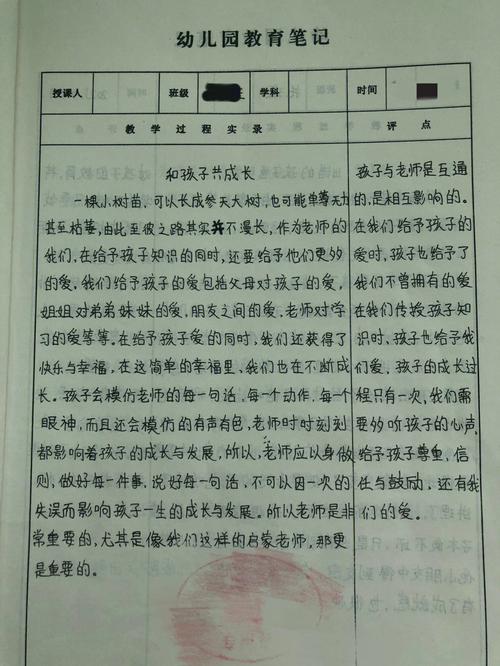 幼儿园教育笔记
授课人 班级 学科 时间
教学过程实录
和孩子共成长
一棵小树苗，可以长成参天大树，也可能单等天力
甚至枯萎，由此至彼之路其实并不漫长，作为老师的
我们，在给予孩子知识的同时，还要给予他们更多
的爱，我们给予孩子的爱包括父母对孩子的爱，
姐姐对弟弟妹妹的爱，朋友之间的爱，老师对学
习的爱等等。在给予孩子爱的同时，我们还获得了
快乐与幸福，在这简单的幸福里，我们也在不断成
长。孩子会模仿老师的每一句话，每一个动作，每一个
眼神，而且还会模仿的有声有色，老师时时刻刻
都影响着孩子的成长与发展，所以，老师应以身做
则，做好每一件事，说好每一句话，不可以因一次的
失误而影响孩子一生的成长与发展。所以老师是非
常重要的，尤其是像我们这样的启蒙老师，那更
是重要的。
评点
孩子与老师是互通
的，是相互影响的。
在我们给予孩子的
爱时，孩子也给予了
我们不曾拥有的爱
在我们传授孩子知
识时，孩子也给予我
们爱，孩子的成长过
程只有一次，我们需
要多听孩子的心声，
给予孩子尊重，信
任与鼓励，还有我
们的爱。